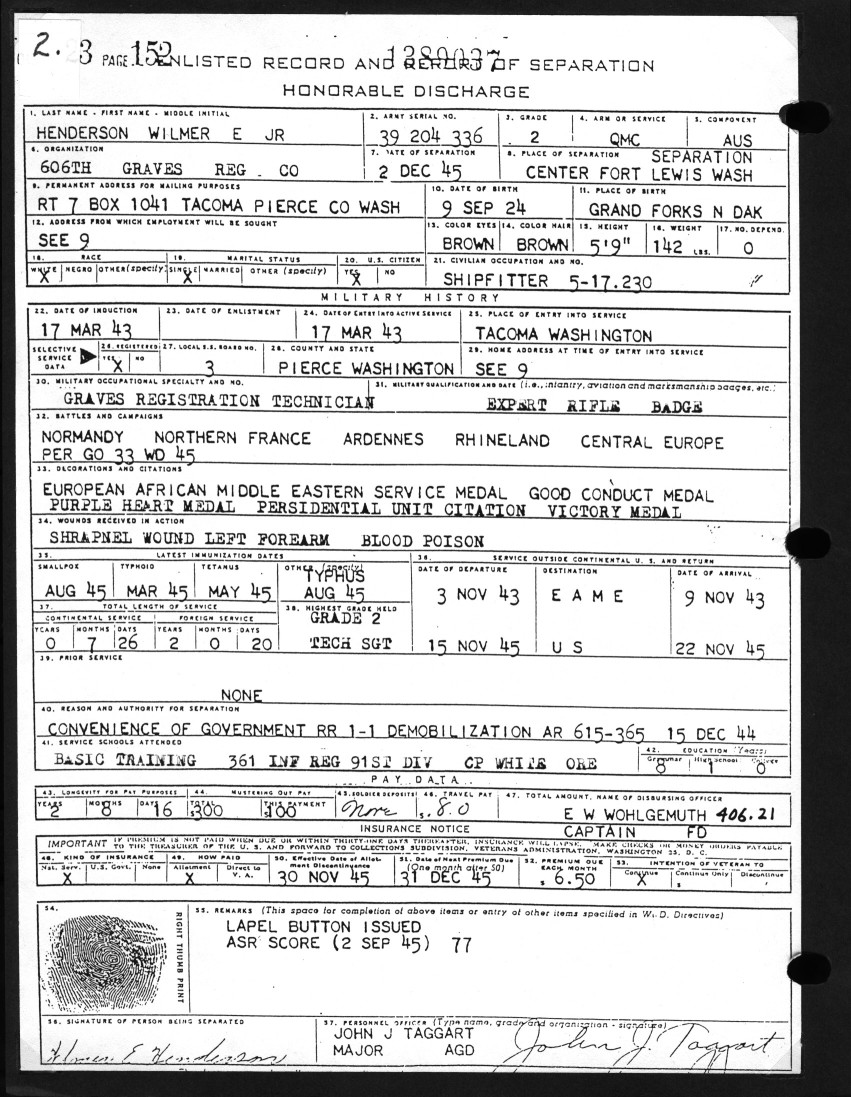 2.
3 PAGE 152 1380037
ENLISTED RECORD AND REPORT OF SEPARATION
HONORABLE DISCHARGE
1. LAST NAME - FIRST NAME - MIDDLE INITIAL 2. ARMY SERIAL NO. 3. GRADE 4. ARM OR SERVICE 5. COMPONENT
HENDERSON WILMER E JR 39 204 336 2 QMC AUS
6. ORGANIZATION 7. DATE OF SEPARATION 8. PLACE OF SEPARATION SEPARATION
606TH GRAVES REG. CO 2 DEC 45 CENTER FORT LEWIS WASH
9. PERMANENT ADDRESS FOR MAILING PURPOSES 10. DATE OF BIRTH 11. PLACE OF BIRTH
RT 7 BOX 1041 TACOMA PIERCE CO WASH 9 SEP 24 GRAND FORKS N DAK
12. ADDRESS FROM WHICH EMPLOYMENT WILL BE SOUGHT 13. COLOR EYES 14. COLOR HAIR 15. HEIGHT 16. WEIGHT 17. NO. DEPEND.
SEE 9 BROWN BROWN 5'9" 142 LBS. 0
18. RACE 19. MARITAL STATUS 20. U.S. CITIZEN 21. CIVILIAN OCCUPATION AND NO.
WHITE NEGRO OTHER (specify) SINGLE MARRIED OTHER (specify) YES NO
X X X SHIPFITTER 5-17.230
MILITARY HISTORY
22. DATE OF INDUCTION 23. DATE OF ENLISTMENT 24. DATE OF ENTRY INTO ACTIVE SERVICE 25. PLACE OF ENTRY INTO SERVICE
17 MAR 43 17 MAR 43 TACOMA WASHINGTON
SELECTIVE SERVICE DATA 26. REGISTERED YES NO 27. LOCAL S.S. BOARD NO. 28. COUNTY AND STATE 29. HOME ADDRESS AT TIME OF ENTRY INTO SERVICE
X 3 PIERCE WASHINGTON SEE 9
30. MILITARY OCCUPATIONAL SPECIALTY AND NO. 31. MILITARY QUALIFICATION AND DATE (i.e., infantry, aviation and marksmanship badges, etc.)
GRAVES REGISTRATION TECHNICIAN EXPERT RIFLE BADGE
32. BATTLES AND CAMPAIGNS
NORMANDY NORTHERN FRANCE ARDENNES RHINELAND CENTRAL EUROPE
PER GO 33 WD 45
33. DECORATIONS AND CITATIONS
EUROPEAN AFRICAN MIDDLE EASTERN SERVICE MEDAL GOOD CONDUCT MEDAL
PURPLE HEART MEDAL PERSIDENTIAL UNIT CITATION VICTORY MEDAL
34. WOUNDS RECEIVED IN ACTION
SHRAPNEL WOUND LEFT FOREARM BLOOD POISON
35. LATEST IMMUNIZATION DATES 36. SERVICE OUTSIDE CONTINENTAL U. S. AND RETURN
SMALLPOX TYPHOID TETANUS OTHER (specify) DATE OF DEPARTURE DESTINATION DATE OF ARRIVAL
TYPHUS
AUG 45 MAR 45 MAY 45 AUG 45 3 NOV 43 E A M E 9 NOV 43
37. TOTAL LENGTH OF SERVICE 38. HIGHEST GRADE HELD
CONTINENTAL SERVICE FOREIGN SERVICE GRADE 2
YEARS MONTHS DAYS YEARS MONTHS DAYS
0 7 26 2 0 20 TECH SGT 15 NOV 45 U S 22 NOV 45
39. PRIOR SERVICE
NONE
40. REASON AND AUTHORITY FOR SEPARATION
CONVENIENCE OF GOVERNMENT RR 1-1 DEMOBILIZATION AR 615-365 15 DEC 44
41. SERVICE SCHOOLS ATTENDED 42. EDUCATION (Years)
Grammar High School College
BASIC TRAINING 361 INF REG 91ST DIV CP WHITE ORE 8 1 0
PAY DATA
43. LONGEVITY FOR PAY PURPOSES 44. MUSTERING OUT PAY 45. SOLDIER DEPOSITS 46. TRAVEL PAY 47. TOTAL AMOUNT, NAME OF DISBURSING OFFICER
YEARS MONTHS DAYS TOTAL THIS PAYMENT
2 8 16 $300 $100 None $ 8.0 E W WOHLGEMUTH 406.21
INSURANCE NOTICE CAPTAIN FD
IMPORTANT IF PREMIUM IS NOT PAID WHEN DUE OR WITHIN THIRTY-ONE DAYS THEREAFTER, INSURANCE WILL LAPSE. MAKE CHECKS OR MONEY ORDERS PAYABLE
TO THE TREASURER OF THE U. S. AND FORWARD TO COLLECTIONS SUBDIVISION, VETERANS ADMINISTRATION, WASHINGTON 25, D. C.
48. KIND OF INSURANCE 49. HOW PAID 50. Effective Date of Allotment Discontinuance 51. Date of Next Premium Due (One month after 50) 52. PREMIUM DUE EACH MONTH 53. INTENTION OF VETERAN TO
Nat. Serv. U.S. Govt. None Allotment Direct to V. A. Continue Continue Only Discontinue
X X 30 NOV 45 31 DEC 45 $ 6.50 X $
54. RIGHT THUMB PRINT
55. REMARKS (This space for completion of above items or entry of other items specified in W. D. Directives)
LAPEL BUTTON ISSUED
ASR SCORE (2 SEP 45) 77
56. SIGNATURE OF PERSON BEING SEPARATED 57. PERSONNEL OFFICER (Type name, grade and organization - signature)
JOHN J TAGGART
MAJOR AGD
Wilmer E Henderson John J. Taggart